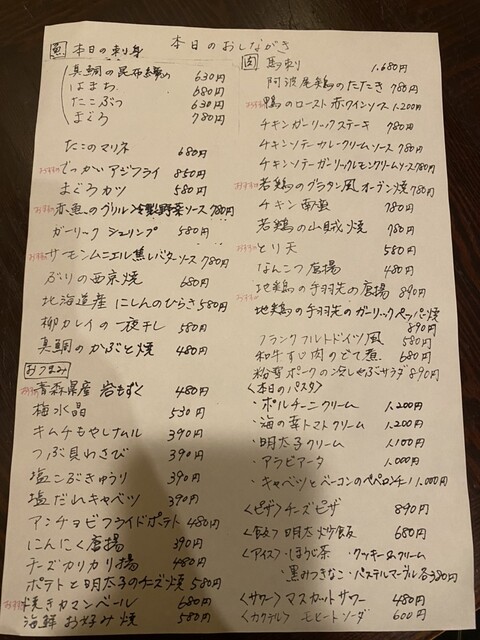 本日のおしながき
魚 本日の刺身
真鯛の昆布〆 630円
はまち 680円
たこぶつ 630円
まぐろ 780円
たこのマリネ 680円
おすすめ でっかいアジフライ 850円
まぐろカツ 580円
おすすめ 赤魚のグリル 冷製野菜ソース 780円
ガーリックシュリンプ 580円
おすすめ サーモンムニエル焦しバターソース 780円
ぶりの西京焼 680円
北海道産 にしんのひらき 580円
柳カレイの一夜干し 580円
真鯛のかぶと焼 480円
おつまみ
おすすめ 青森県産 岩もずく 480円
梅水晶 530円
キムチもやしナムル 390円
つぶ貝わさび 390円
塩こぶきゅうり 390円
塩だれキャベツ 390円
アンチョビフライドポテト 480円
にんにく唐揚 390円
チーズカリカリ揚 480円
ポテトと明太子のチーズ焼 580円
おすすめ 焼きカマンベール 680円
海鮮お好み焼 580円
肉 馬刺 1.680円
阿波尾鶏のたたき 780円
おすすめ 鴨のロースト 赤ワインソース 1.200円
チキンガーリックステーキ 780円
チキンソテーカレークリームソース 780円
チキンソテーガーリックレモンクリームソース 780円
おすすめ 若鶏のグラタン風オーブン焼 780円
チキン南蛮 780円
若鶏の山賊焼 780円
おすすめ とり天 580円
なんこつ唐揚 480円
地鶏の手羽先の唐揚 890円
おすすめ 地鶏の手羽先のガーリックペッパー焼 890円
フランクフルトドイツ風 580円
和牛すじ肉のどて煮 680円
粉雪ポークの冷しゃぶサラダ 890円
<本日のパスタ>
・ポルチーニクリーム 1.200円
・海の幸トマトクリーム 1.200円
・明太子クリーム 1.100円
・アラビアータ 1.000円
・キャベツとベーコンのペペロンチーノ 1.000円
<ピザ> チーズピザ 890円
<飯> 明太炒飯 680円
<アイス> ・ほうじ茶 ・クッキー&クリーム
・黒みつきなこ ・パステルマーブル 各380円
<サワー> マスカットサワー 480円
<カクテル> モヒートソーダ 600円